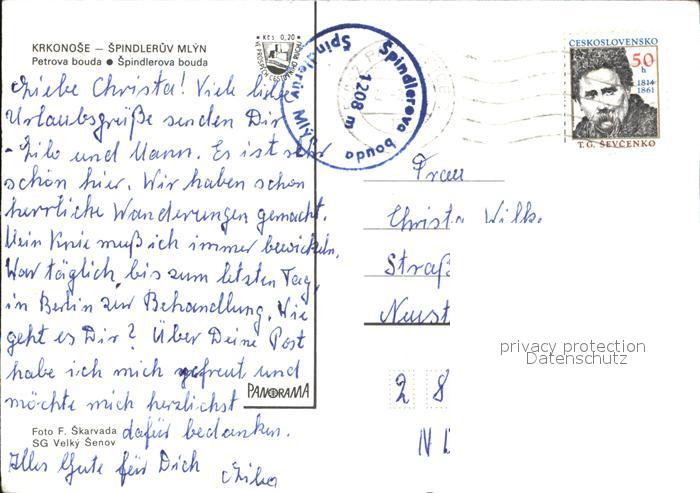 KRKONOŠE — ŠPINDLERŮV MLÝN
Petrova bouda ● Špindlerova bouda
Kčs 0,20
Liebe Christa! Viele liebe
Urlaubsgrüße senden Dir
- Zilo und Mann. Es ist sehr
schön hier. Wir haben schon
herrliche Wanderungen gemacht.
Mein Knie muß ich immer bewickeln.
War täglich, bis zum letzten Tag,
in Berlin zur Behandlung. Wie
geht es Dir? Über Deine Post
habe ich mich gefreut und
möchte mich herzlichst
dafür bedanken.
Alles Gute für Dich
PANORAMA
Foto F. Škarvada
SG Velký Šenov
Špindlerův MLÝN
Špindlerova bouda
1208 m
ČESKOSLOVENSKO
50 h
1814
1861
T. G. ŠEVČENKO
Frau
Christa Wilk
Straß
Neust
2 8
privacy protection
Datenschutz